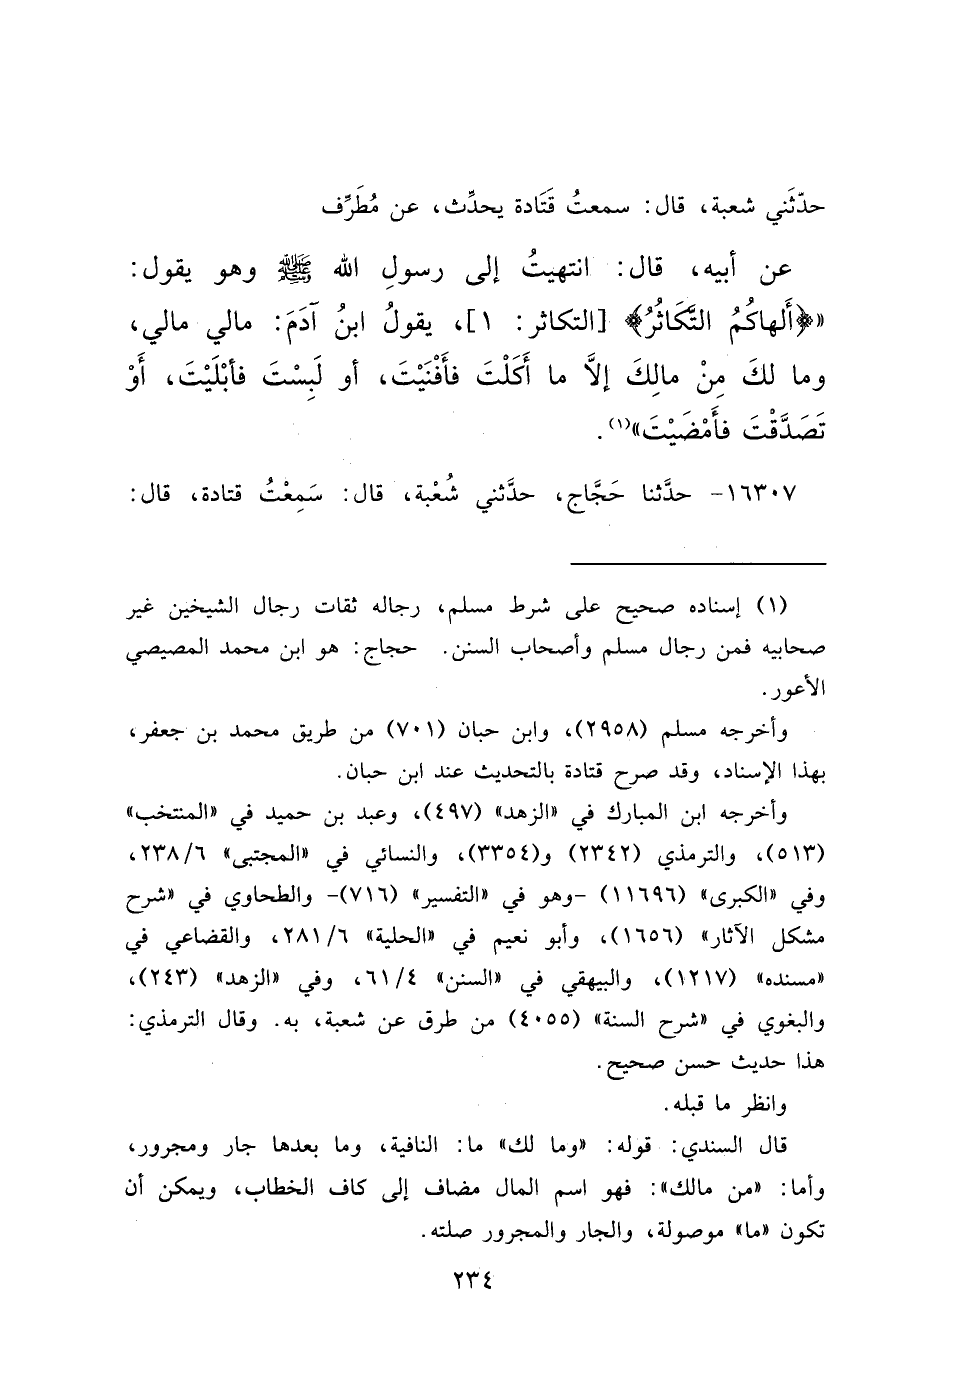 حدّثَني شعبة، قال: سمعتُ قَتَادة يحدِّث، عن مُطَرِّف
عن أبيه، قال: انتهيتُ إلى رسولِ الله ﷺ وهو يقول:
«﴿أَلهاكُمُ التَّكَاثُرُ﴾ [التكاثر: ١]، يقولُ ابنُ آدَمَ: مالي مالي،
وما لكَ مِنْ مالِكَ إلاَّ ما أَكَلْتَ فأَفْنَيْتَ، أو لَبِسْتَ فأبْلَيْتَ، أَوْ
تَصَدَّقْتَ فأَمْضَيْتَ»(١).
١٦٣٠٧- حدَّثنا حَجَّاج، حدَّثني شُعْبة، قال: سَمِعْتُ قتادة، قال:
(١) إسناده صحيح على شرط مسلم، رجاله ثقات رجال الشيخين غير
صحابيه فمن رجال مسلم وأصحاب السنن. حجاج: هو ابن محمد المصيصي
الأعور.
وأخرجه مسلم (٢٩٥٨)، وابن حبان (٧٠١) من طريق محمد بن جعفر،
بهذا الإسناد، وقد صرح قتادة بالتحديث عند ابن حبان.
وأخرجه ابن المبارك في «الزهد» (٤٩٧)، وعبد بن حميد في «المنتخب»
(٥١٣)، والترمذي (٢٣٤٢) و(٣٣٥٤)، والنسائي في «المجتبى» ٢٣٨/٦،
وفي «الكبرى» (١١٦٩٦) -وهو في «التفسير» (٧١٦)- والطحاوي في «شرح
مشكل الآثار» (١٦٥٦)، وأبو نعيم في «الحلية» ٢٨١/٦، والقضاعي في
«مسنده» (١٢١٧)، والبيهقي في «السنن» ٦١/٤، وفي «الزهد» (٢٤٣)،
والبغوي في «شرح السنة» (٤٠٥٥) من طرق عن شعبة، به. وقال الترمذي:
هذا حديث حسن صحيح.
وانظر ما قبله.
قال السندي: قوله: «وما لك» ما: النافية، وما بعدها جار ومجرور،
وأما: «من مالك»: فهو اسم المال مضاف إلى كاف الخطاب، ويمكن أن
تكون «ما» موصولة، والجار والمجرور صلته.
٢٣٤